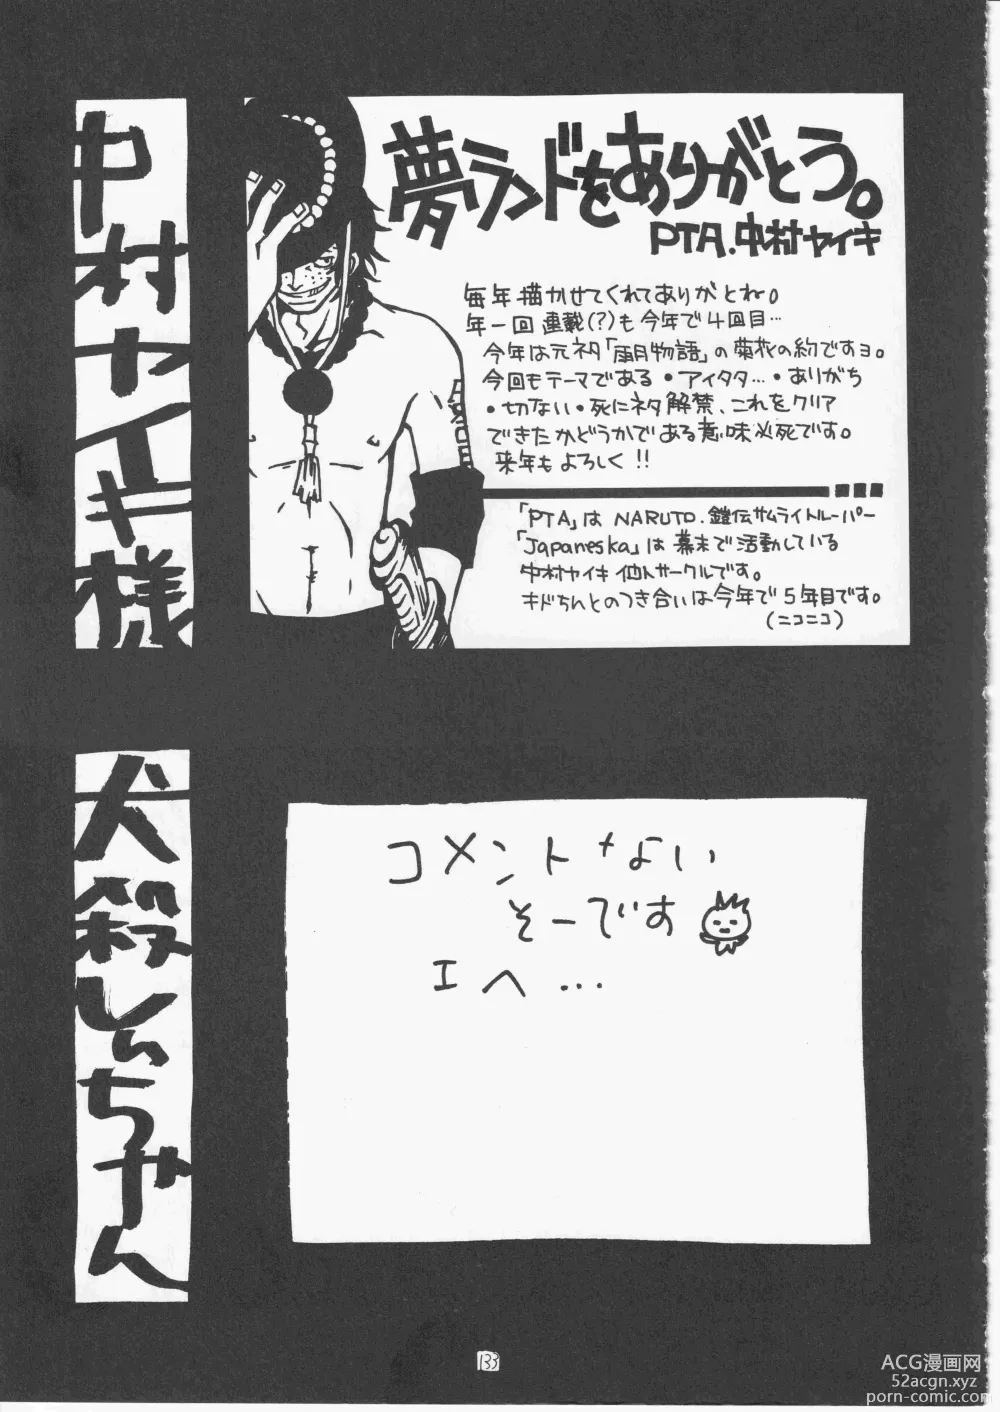 中村ヤイキ様
夢ランドをありがとう。
PTA.中村ヤイキ
毎年描かせてくれてありがとね。
年一回連載(?)も今年で4回目…
今年は元ネタ「雨月物語」の菊花の約ですョ。
今回もテーマである・アイタタ…・ありがち
・切ない・死にネタ解禁、これをクリア
できたかどうかである意味必死です。
来年もよろしく!!
「PTA」は NARUTO.鎧伝サムライトルーパー
「Japaneska」は幕末で活動している
中村ヤイキ個人サークルです。
キドちんとのつき合いは今年で5年目です。
(ニコニコ)
犬殺しぃちゃん
コメントなぃ
そーです
エヘ…
133
ACG漫画网
52acgn.xyz
porn-comic.com